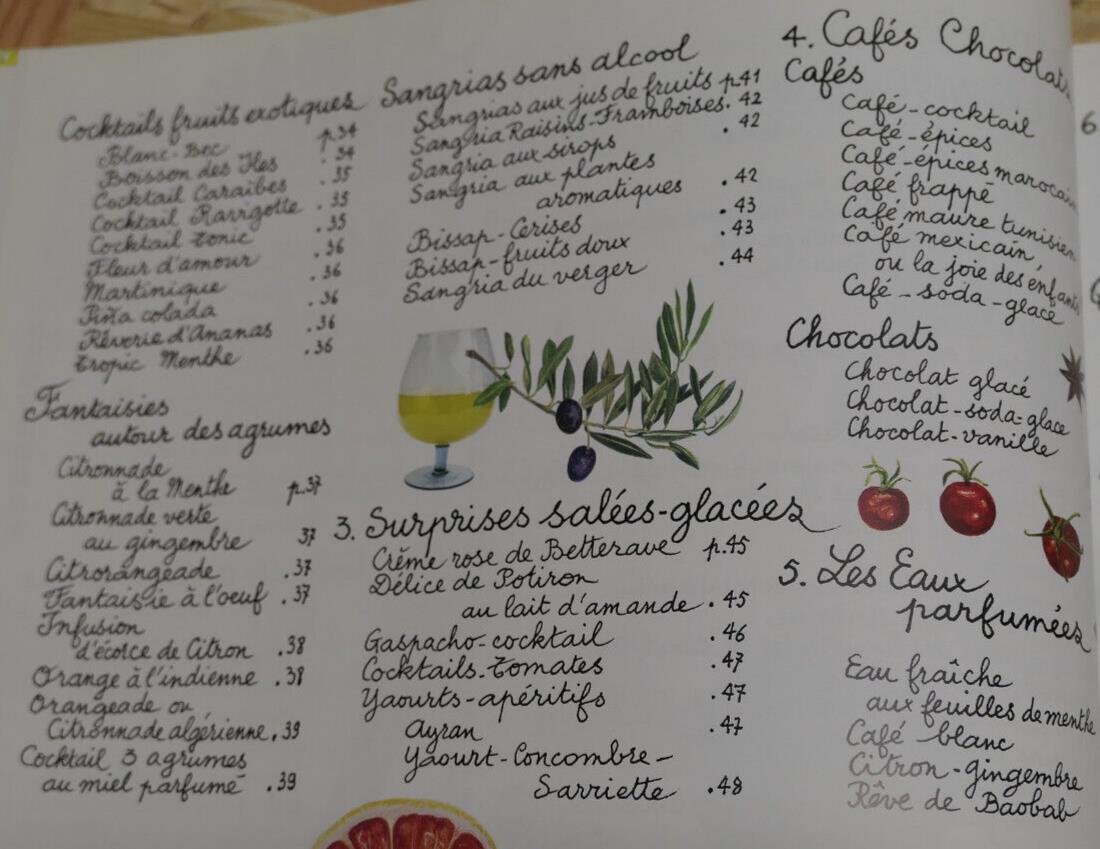 Cocktails fruits exotiques
Blanc-Bec p.34
Boisson des Iles . 34
Cocktail Caraïbes . 35
Cocktail Ravigotte . 35
Cocktail tonic . 35
Fleur d'amour . 36
Martinique . 36
Piña colada . 36
Rêverie d'Ananas . 36
Tropic Menthe . 36
Fantaisies
autour des agrumes
Citronnade
à la Menthe p.37
Citronnade verte
au gingembre 37
Citrorangeade . 37
Fantaisie à l'oeuf . 37
Infusion
d'écorce de Citron . 38
Orange à l'indienne . 38
Orangeade ou
Citronnade algérienne . 39
Cocktail 3 agrumes
au miel parfumé . 39
Sangrias sans alcool
Sangrias aux jus de fruits p.41
Sangria Raisins-Framboises . 42
Sangria aux sirops . 42
Sangria aux plantes
aromatiques . 42
Bissap-Cerises . 43
Bissap-fruits doux . 43
Sangria du verger . 44
3. Surprises salées-glacées
Crème rose de Betterave p.45
Délice de Potiron
au lait d'amande . 45
Gaspacho-cocktail . 46
Cocktails-Tomates . 47
Yaourts-apéritifs . 47
Ayran . 47
Yaourt-Concombre-
Sarriette . 48
4. Cafés Chocolats
Cafés
Café-cocktail
Café-épices
Café-épices marocain
Café frappé
Café maure tunisien
Café mexicain,
ou la joie des enfants
Café-soda-glace
Chocolats
Chocolat glacé
Chocolat-soda-glace
Chocolat-vanille
5. Les Eaux
parfumées
Eau fraîche
aux feuilles de menthe
Café blanc
Citron-gingembre
Rêve de Baobab
6